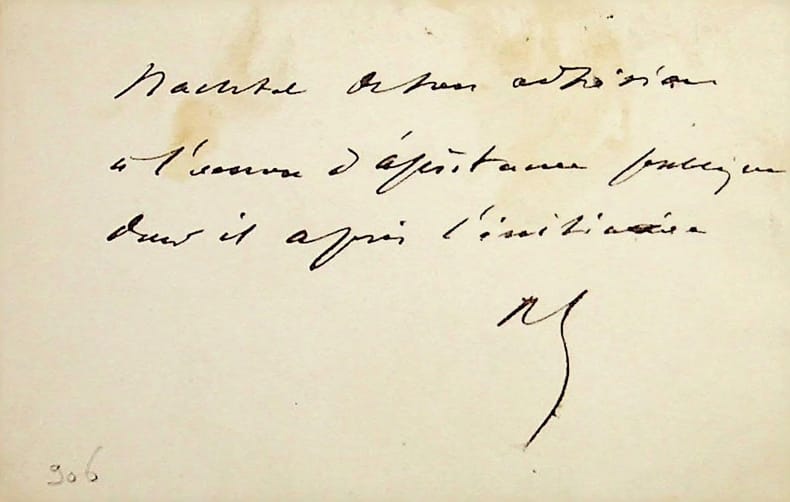 de son adhésion
à l'œuvre d'assistance publique
dont il a pris l'initiative
906